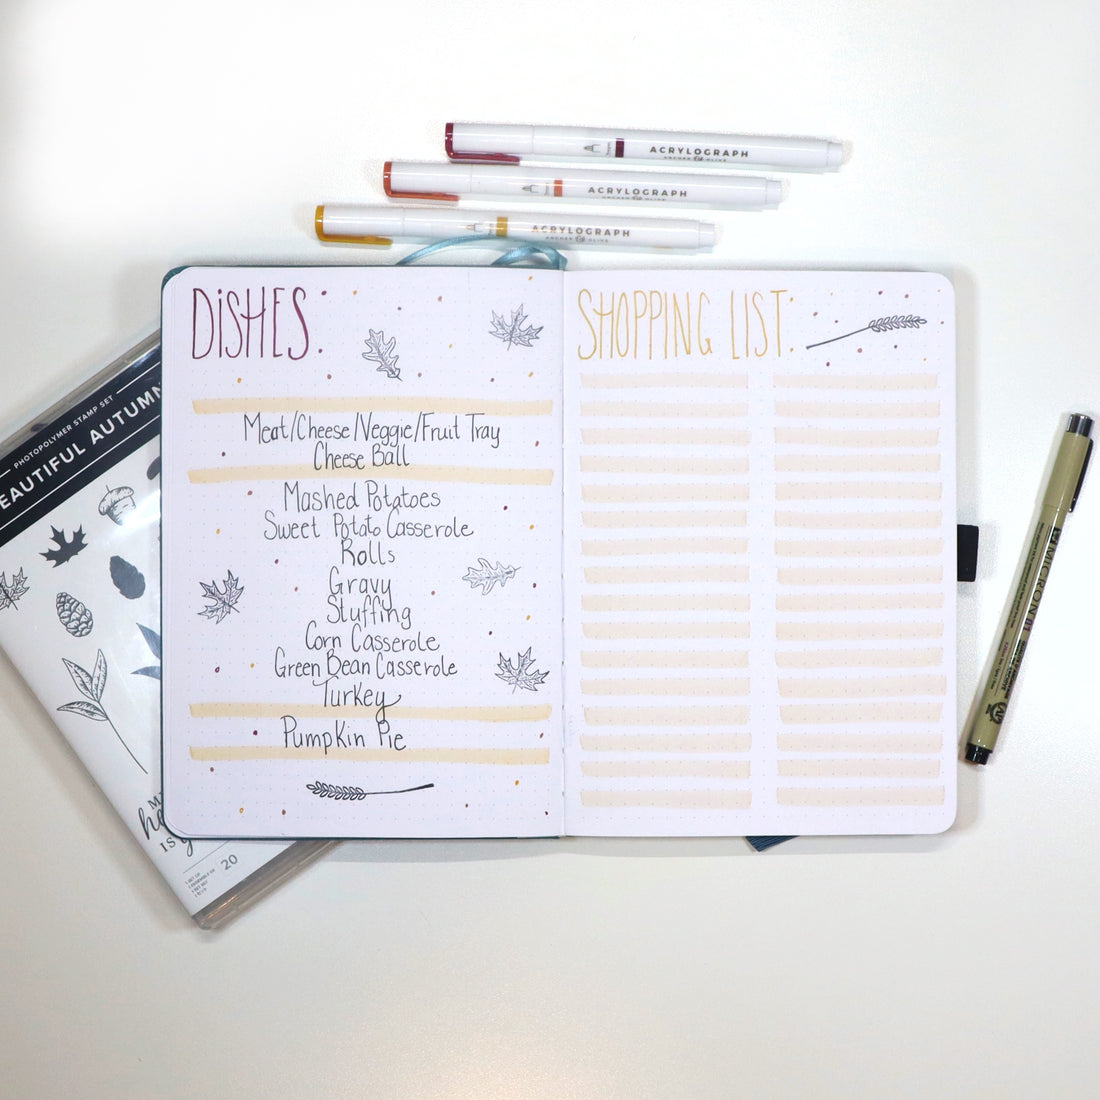 ACRYLOGRAPH
ARCHER & OLIVE
ACRYLOGRAPH
ARCHER & OLIVE
ACRYLOGRAPH
ARCHER & OLIVE
DISHES:
Meat/Cheese/Veggie/Fruit Tray
Cheese Ball
Mashed Potatoes
Sweet Potato Casserole
Rolls
Gravy
Stuffing
Corn Casserole
Green Bean Casserole
Turkey
Pumpkin Pie
SHOPPING LIST:
PHOTOPOLYMER STAMP SET
EAUTIFUL AUTUMN
IS
20
MICRON 01